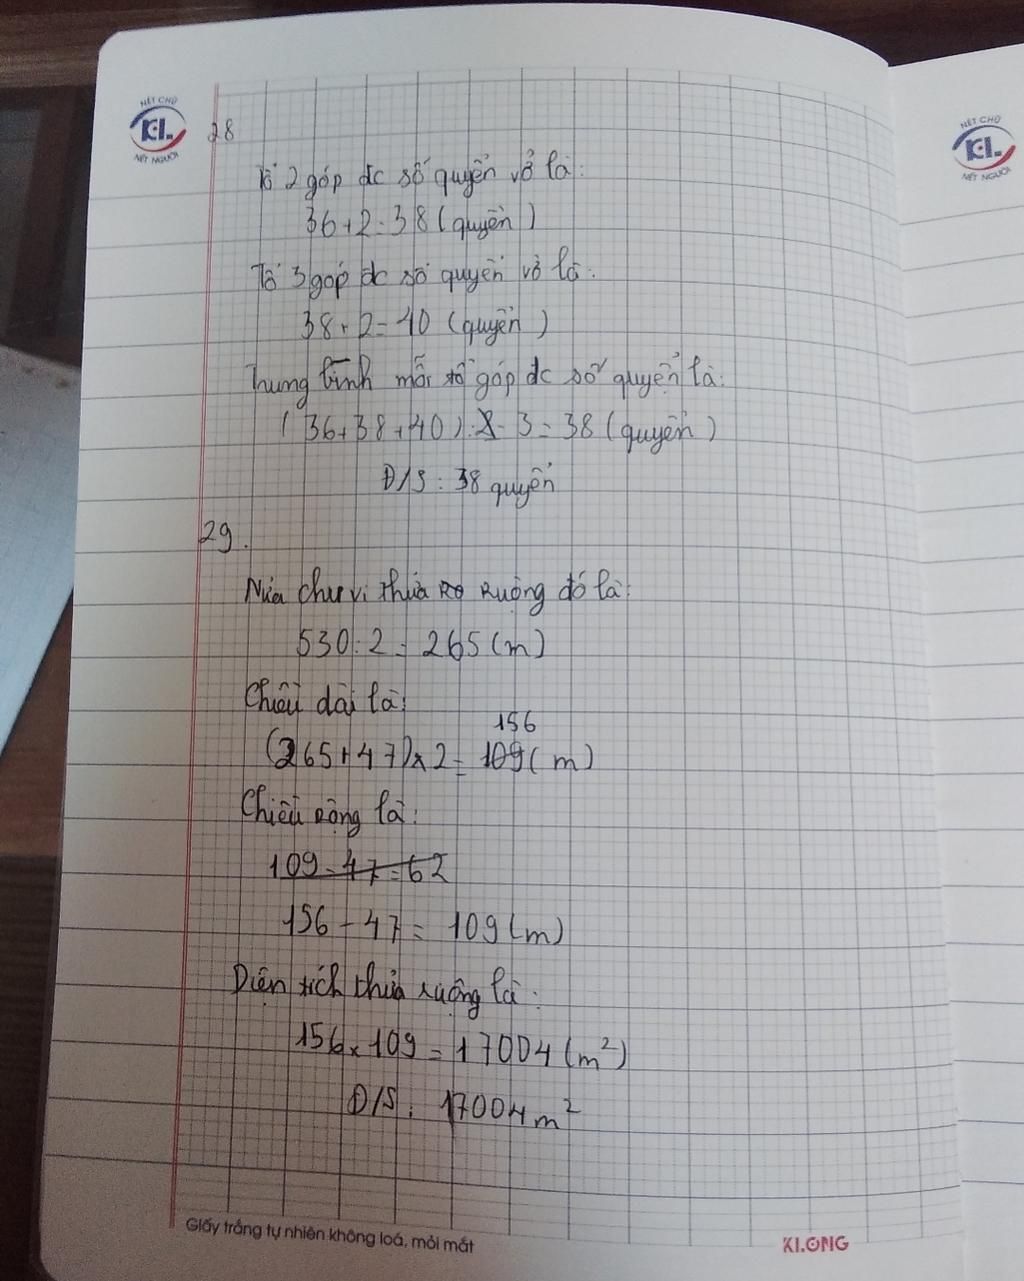 NÉT CHỮ
KL
NẾT NGƯỜI
NÉT CHỮ
KL
NẾT NGƯỜI
28
Tổ 2 góp đc số quyển vở là:
36+2=38 (quyển)
Tổ 3 góp đc số quyển vở là:
38+2=40 (quyển)
Trung bình mỗi tổ góp đc số quyển là:
(36+38+40): 3=38 (quyển)
Đ/S: 38 quyển
29.
Nửa chu vi thửa Rộ Ruộng đó là:
530:2=265(m)
Chiều dài là:
156
(265+47)x2=109(m)
Chiều rộng là:
109-47=62
156-47=109(m)
Diện tích thửa ruộng là:
156x109=17004(m²)
Đ/S: 17004m²
Giấy trắng tự nhiên không loá, mỏi mắt
KLONG